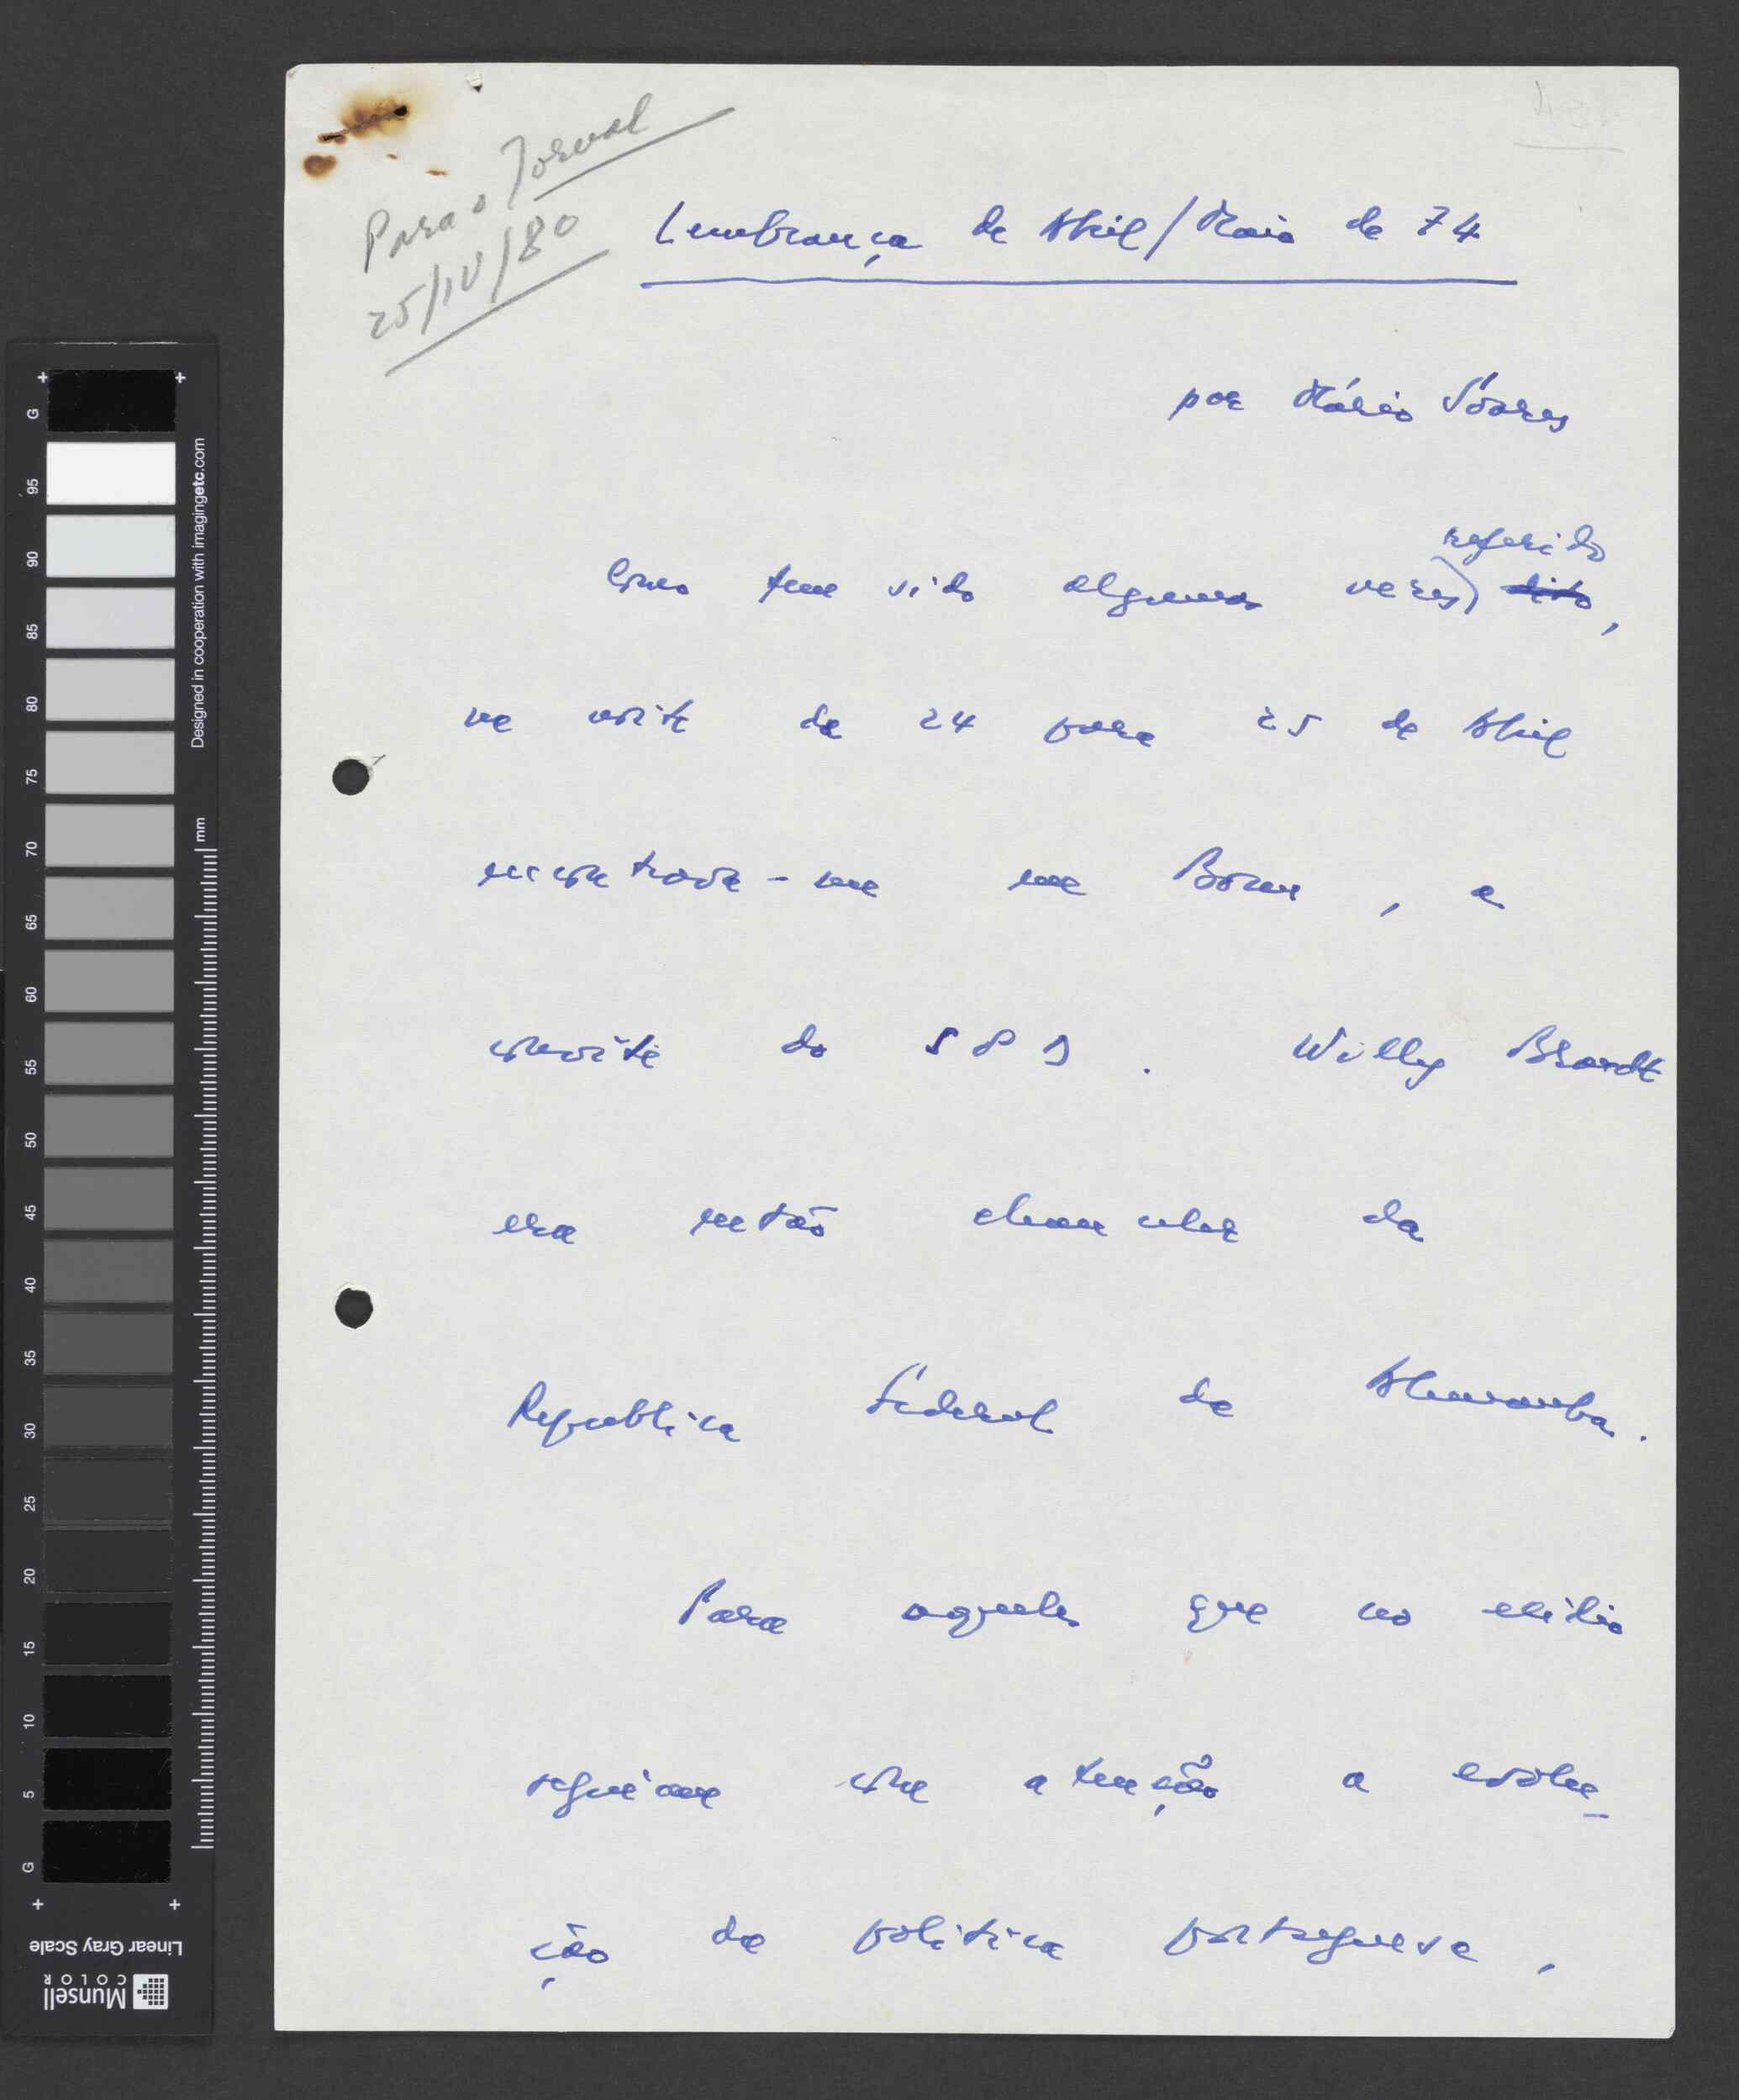 Para o Jornal
25/IV/80
Lembrança de Abril/Maio de 74
por Mário Soares
referido
Como tem sido algumas vezes dito,
na noite de 24 para 25 de Abril
encontrava-me em Bona, a
convite do SPD. Willy Brandt
era então chanceler da
Republica Federal da Alemanha.
Para aqueles que no exílio
seguiam com atenção a evolu-
ção da politica portuguesa,
G
95
90
85
80
75
70
65
60
55
50
45
40
35
30
25
20
15
10
5
G
mm
Designed in cooperation with imagingetc.com
Linear Gray Scale
Munsell
COLOR